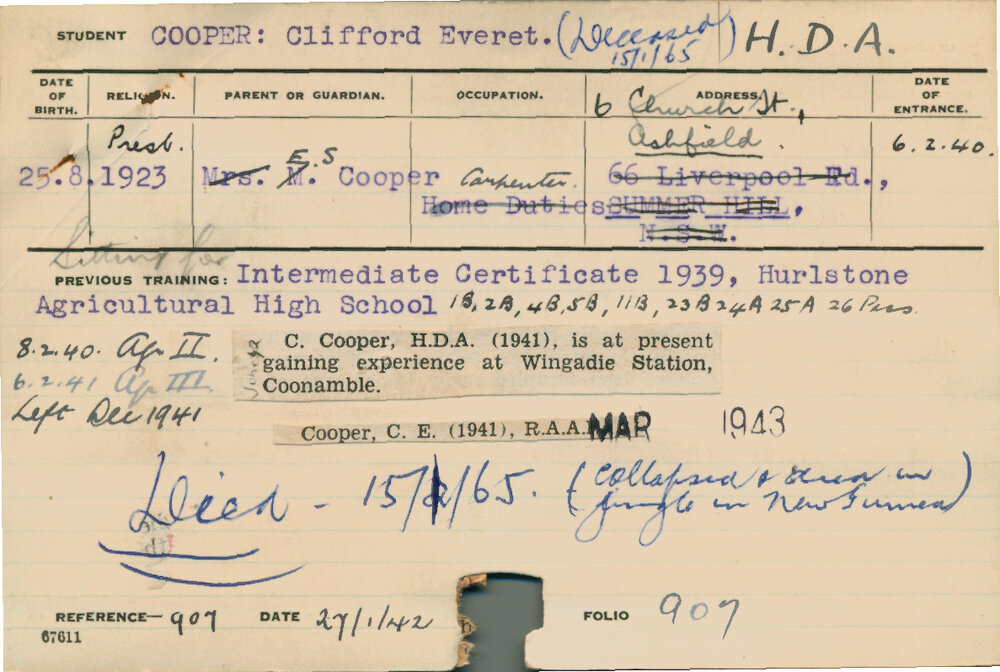 STUDENT COOPER: Clifford Everet. (Deceased 15/1/65) H.D.A.
DATE OF BIRTH. RELIGION. PARENT OR GUARDIAN. OCCUPATION. ADDRESS. DATE OF ENTRANCE.
6 Church St.,
Ashfield.
Presb. E.S 6.2.40.
25.8.1923 Mrs. M. Cooper Carpenter. 66 Liverpool Rd.,
Home Duties SUMMER HILL,
N.S.W.
Sitting for
PREVIOUS TRAINING: Intermediate Certificate 1939, Hurlstone
Agricultural High School 1B, 2B, 4B, 5B, 11B, 23B 24A 25A 26 Pass
8.2.40. Ag. II.
6.2.41 Ag III.
Left Dec 1941
C. Cooper, H.D.A. (1941), is at present
gaining experience at Wingadie Station,
Coonamble.
Cooper, C. E. (1941), R.A.A. MAR 1943
Died - 15/1/65. (Collapsed & died in
jungle in New Guinea)
REFERENCE— 907 DATE 27/1/42 FOLIO 907
67611